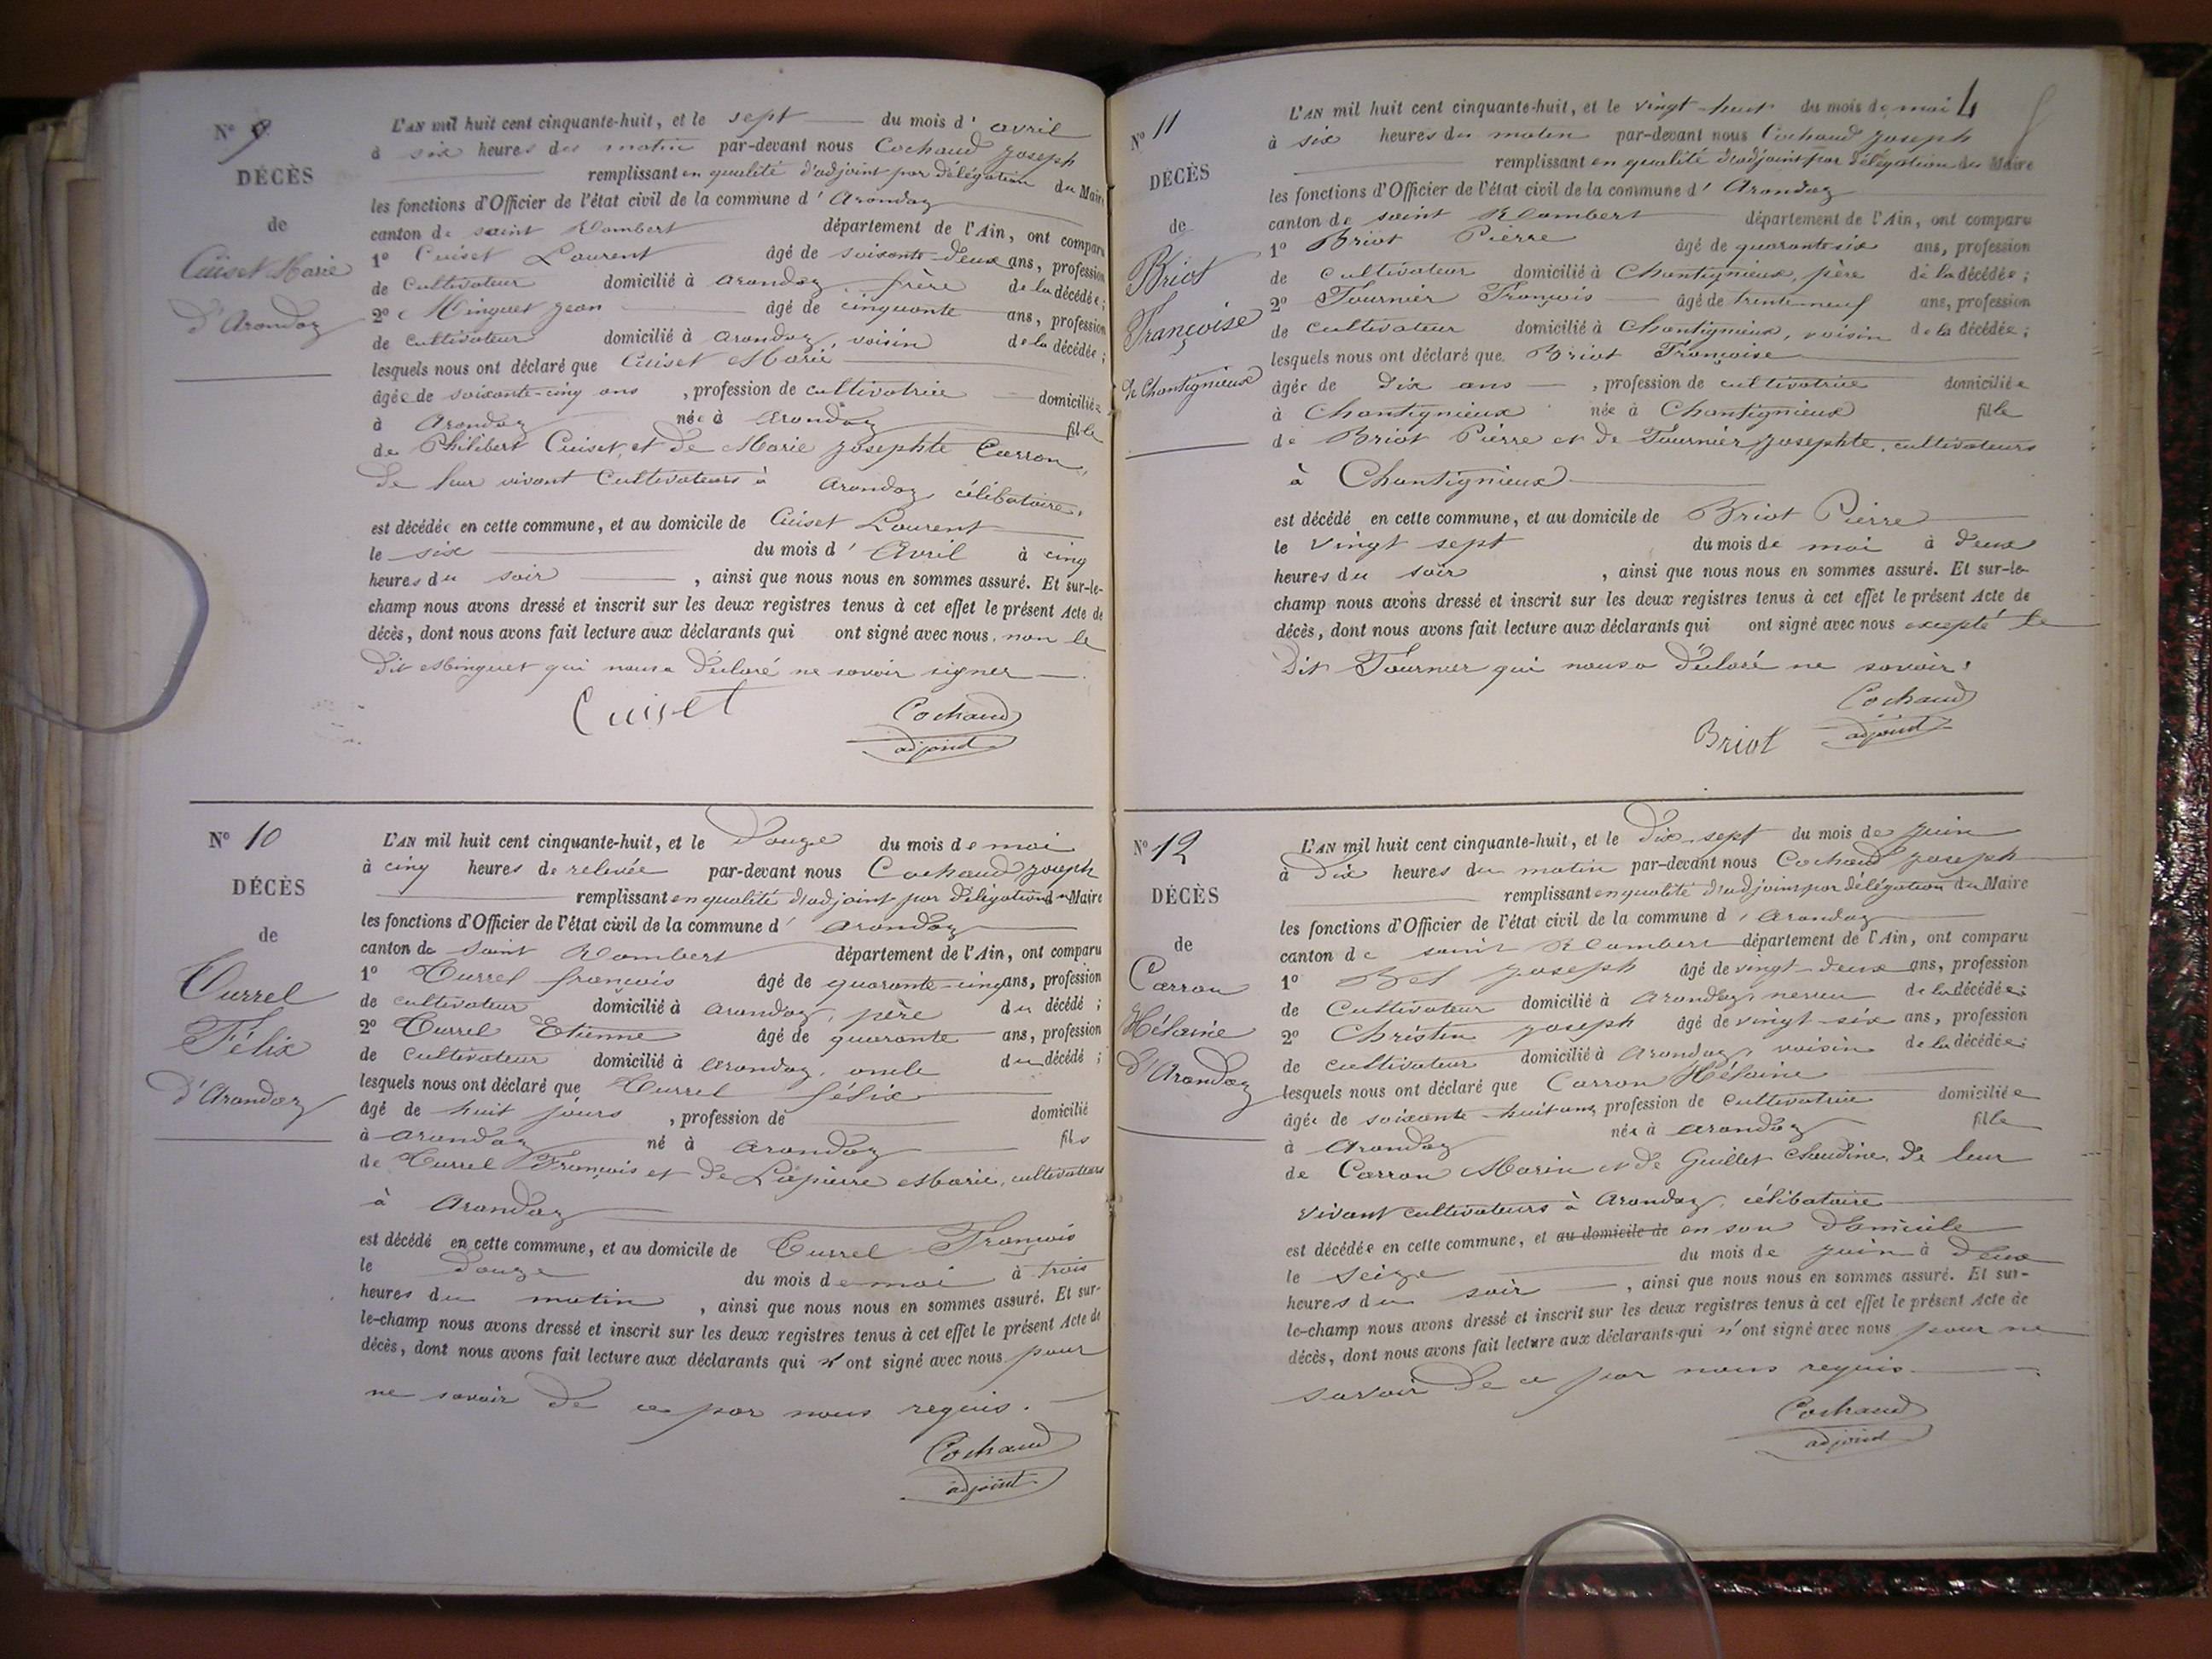 N° 9
DÉCÈS
de
Cuiset Marie
d'Arandaz
L'AN mil huit cent cinquante-huit, et le sept du mois d'avril
à six heures du matin par-devant nous Cochaud Joseph
remplissant en qualité d'adjoint par délégation du Maire
les fonctions d'Officier de l'état civil de la commune d'Arandaz
canton de saint Rambert département de l'Ain, ont comparu
1° Cuiset Laurent âgé de soixante-deux ans, profession
de cultivateur domicilié à Arandaz, frère de la décédée ;
2° Minguet Jean âgé de cinquante ans, profession
de cultivateur domicilié à Arandaz, voisin de la décédée ;
lesquels nous ont déclaré que Cuiset Marie
âgée de soixante-cinq ans, profession de cultivatrice domiciliée
à Arandaz née à Arandaz fille
de Philibert Cuiset, et de Marie Josephte Carron,
de leur vivant cultivateurs à Arandaz, célibataire,
est décédée en cette commune, et au domicile de Cuiset Laurent
le six du mois d'Avril à cinq
heures du soir, ainsi que nous nous en sommes assuré. Et sur-le-
champ nous avons dressé et inscrit sur les deux registres tenus à cet effet le présent Acte de
décès, dont nous avons fait lecture aux déclarants qui ont signé avec nous, non le
dit Minguet qui nous a déclaré ne savoir signer
Cuiset Cochaud
adjoint
N° 10
DÉCÈS
de
Currel
Félix
d'Arandaz
L'AN mil huit cent cinquante-huit, et le douze du mois de mai
à cinq heures de relevée par-devant nous Cochaud Joseph
remplissant en qualité d'adjoint par délégation du Maire
les fonctions d'Officier de l'état civil de la commune d'Arandaz
canton de saint Rambert département de l'Ain, ont comparu
1° Currel françois âgé de quarante-cinq ans, profession
de cultivateur domicilié à Arandaz, père du décédé ;
2° Currel Etienne âgé de quarante ans, profession
de cultivateur domicilié à Arandaz, oncle du décédé ;
lesquels nous ont déclaré que Currel félix
âgé de huit jours, profession de domicilié
à Arandaz né à Arandaz fils
de Currel François et de Lapierre Marie, cultivateurs
à Arandaz
est décédé en cette commune, et au domicile de Currel François
le douze du mois de mai à trois
heures du matin, ainsi que nous nous en sommes assuré. Et sur-
le-champ nous avons dressé et inscrit sur les deux registres tenus à cet effet le présent Acte de
décès, dont nous avons fait lecture aux déclarants qui n'ont signé avec nous pour
ne savoir de ce par nous requis.
Cochaud
adjoint
4
N° 11
DÉCÈS
de
Briot
Françoise
de Chantignieux
L'AN mil huit cent cinquante-huit, et le vingt-huit du mois de mai
à six heures du matin par-devant nous Cochaud Joseph
remplissant en qualité d'adjoint par délégation du Maire
les fonctions d'Officier de l'état civil de la commune d'Arandaz
canton de saint Rambert département de l'Ain, ont comparu
1° Briot Pierre âgé de quarante six ans, profession
de cultivateur domicilié à Chantignieux, père de la décédée ;
2° Fournier François âgé de trente neuf ans, profession
de cultivateur domicilié à Chantignieux, voisin de la décédée ;
lesquels nous ont déclaré que Briot Françoise
âgée de dix ans, profession de cultivatrice domiciliée
à Chantignieux née à Chantignieux fille
de Briot Pierre et de Fournier Josephte, cultivateurs
à Chantignieux
est décédé en cette commune, et au domicile de Briot Pierre
le vingt sept du mois de mai à deux
heures du soir, ainsi que nous nous en sommes assuré. Et sur-le-
champ nous avons dressé et inscrit sur les deux registres tenus à cet effet le présent Acte de
décès, dont nous avons fait lecture aux déclarants qui ont signé avec nous excepté le
dit Fournier qui nous a déclaré ne savoir.
Cochaud
Briot adjoint
N° 12
DÉCÈS
de
Carron
Hélaine
d'Arandaz
L'AN mil huit cent cinquante-huit, et le dix-sept du mois de juin
à dix heures du matin par-devant nous Cochaud Joseph
remplissant en qualité d'adjoint par délégation du Maire
les fonctions d'Officier de l'état civil de la commune d'Arandaz
canton de saint Rambert département de l'Ain, ont comparu
1° Bel Joseph âgé de vingt-deux ans, profession
de Cultivateur domicilié à Arandaz, neveu de la décédée ;
2° Christin Joseph âgé de vingt-six ans, profession
de cultivateur domicilié à Arandaz, voisin de la décédée ;
lesquels nous ont déclaré que Carron Hélaine
âgée de soixante-huit ans, profession de cultivatrice domiciliée
à Arandaz née à Arandaz fille
de Carron Marin et de Guillet Claudine, de leur
vivant cultivateurs à Arandaz, célibataire
est décédée en cette commune, et au domicile de en son domicile
le seize du mois de juin à deux
heures du soir, ainsi que nous nous en sommes assuré. Et sur-
le-champ nous avons dressé et inscrit sur les deux registres tenus à cet effet le présent Acte de
décès, dont nous avons fait lecture aux déclarants qui n'ont signé avec nous pour ne
savoir de ce par nous requis
Cochaud
adjoint